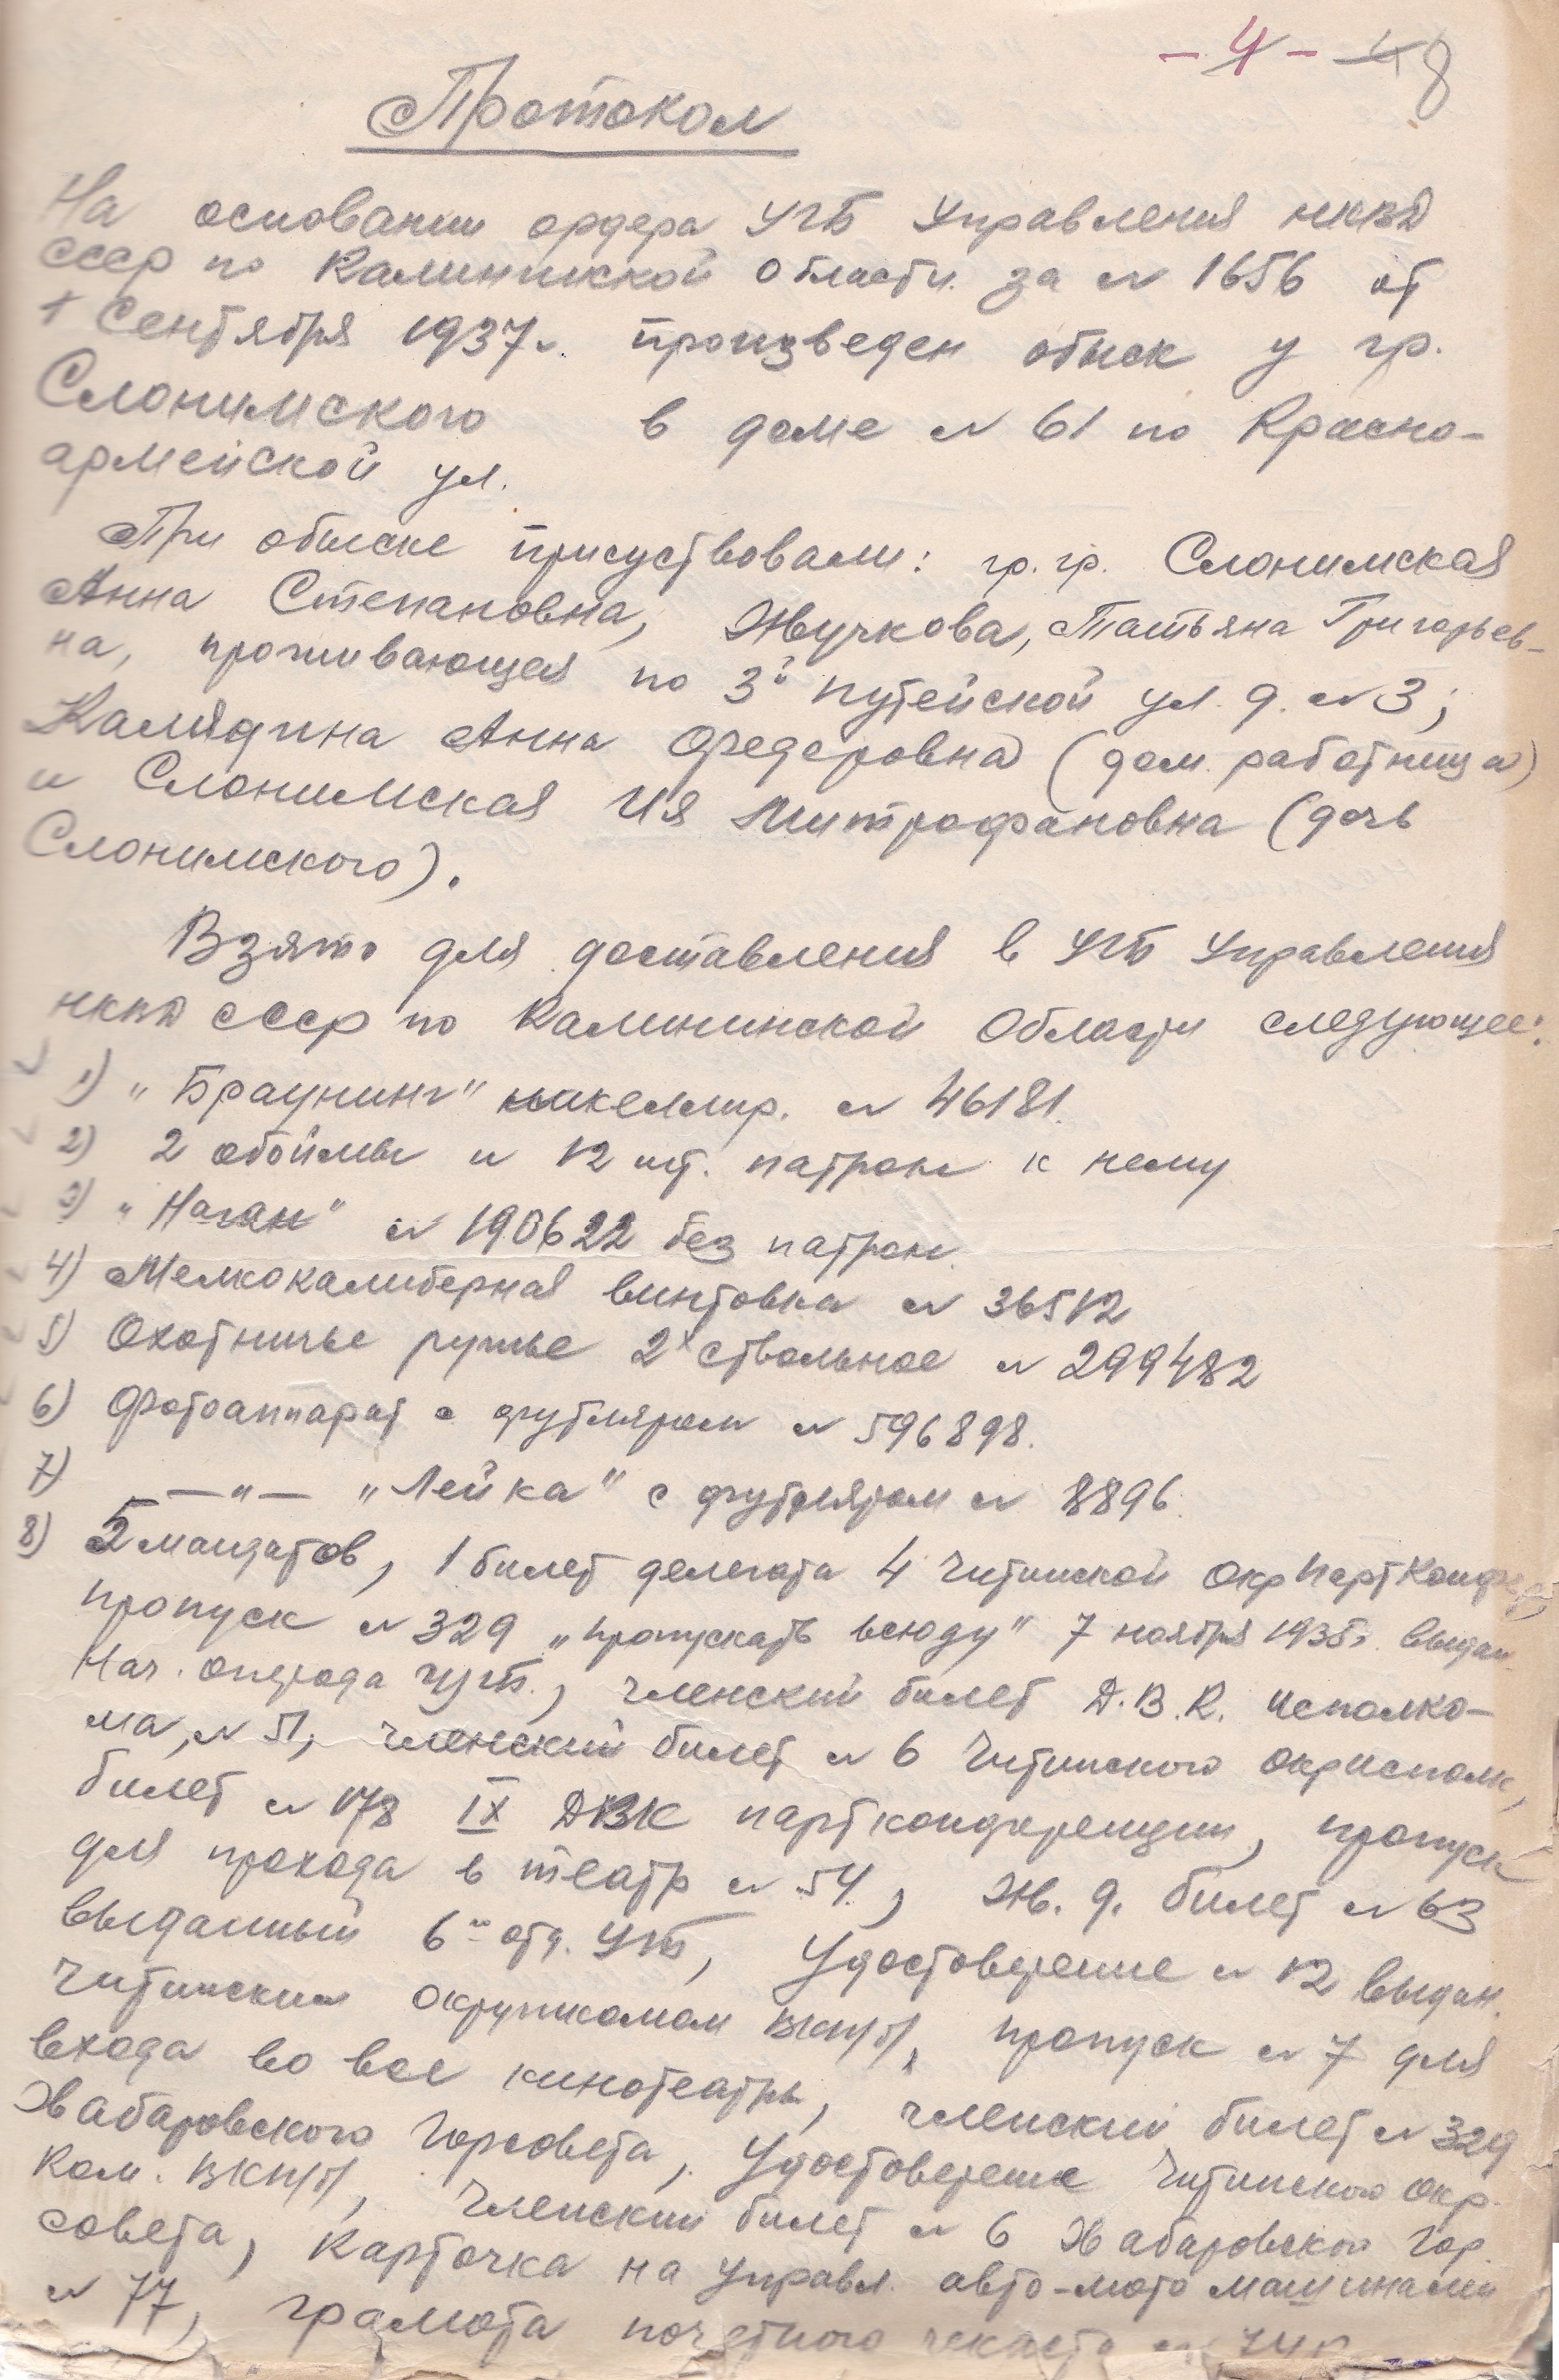 - 4 - 48
Протокол
На основании ордера УГБ Управления НКВД
СССР по Калининской области за № 1656 от
1 Сентября 1937г. произведен обыск у гр.
Слонимского в доме № 61 по Красно-
армейской ул.
При обыске присуствовали: гр. гр. Слонимская
Анна Степановна, Жучкова, Татьяна Григорьев-
на, проживающая по 3й Путейской ул. д. № 3;
Калядина Анна Федоровна (дом. работница)
и Слонимская Ия Митрофановна (дочь
Слонимского).
Взято для доставления в УГБ Управления
НКВД СССР по Калининской Области следующее:
1) "Браунинг" никеллир. № 46181.
2) 2 обоймы и 12 шт. патрон к нему
3) "Наган" № 190622 без патрон.
4) Мелкокалиберная винтовка № 36512
5) Охотничье ружье 2х ствольное № 299482
6) Фотоаппарат с футляром № 596898.
7) —"— "Лейка" с футляром № 8896.
8) 5 мандатов, 1 билет делегата 4 Читинской ОкрПартКонфер,
пропуск № 329 "пропускать всюду" 7 ноября 1935г. выдан
Нач. Оперода ЧУГБ., членский билет Д.В.К. исполко-
ма, № 51, членский билет № 6 Читинского Окрисполк,
билет № 178 IX ДВК партконференции, пропуск
для прохода в театр № 54, Ж. д. билет № 63
выданный 6м отд. УГБ, Удостоверение № 12 выдан.
Читинским Окружкомом ВКП/б/, пропуск № 7 для
входа во все кинотеатры, членский билет № 329
Хабаровского Горсовета, Удостоверение Читинского Окр.
Ком. ВКП/б/, Членский билет № 6 Хабаровского Гор.
совета, Карточка на управл. авто-мото машинами
№ 77, грамота почетного чекиста №